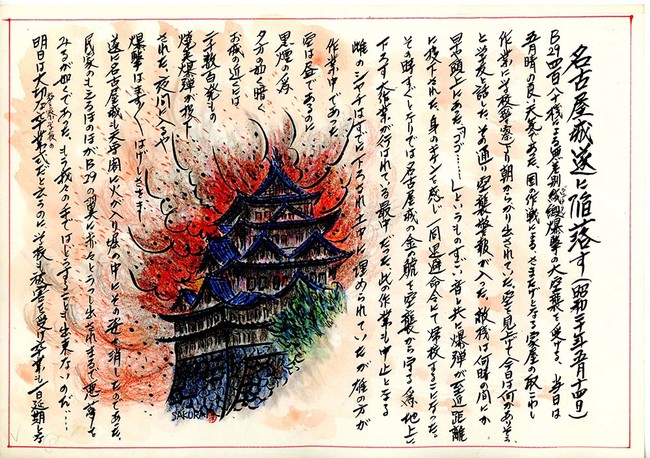 名古屋城遂に陥落す(昭和二十年五月十四日)
B29四百八十機による無差別絨緞爆撃の大空襲を受ける。当日は
五月晴の良い天気であった。国の作戦によるさまたげとなる家屋の取こわし
作業に学校(警察)より朝からかり出されていた。空を見上げて今日は何かありそう
と学友と話した。その通り空襲警報が入った。敵機は何時の間にか
早や頭上にあった。「ゴゴ……」というものすごい音と共に爆弾が至近距離
に投下された。身のキケンを感じ一同退避命令にて帰校することになった。
その時すでにケリでは名古屋城の金の鯱を空襲から守る為地上に
下ろす大作業が行はれている最中だった。此の作業も中止となる
雌のシャチはすでに下ろされ土中に埋められていたが雄の方が
作業中であった
空は昼であるのに
黒煙の為
夕方の如く暗く
お城の近くは
二千数百発もの
焼夷爆弾が投下
された。夜間に入るや
爆撃は益々はげしさをまし
遂に名古屋城も天守閣に火が入り焔の中にその姿を消したのであった。
民家のもえるほのほがB29の翼に赤々とうつし出されまるで悪夢を
みるが如くであった。もう我々の手ではどうすることも出来ないのだ…
明日は大切な卒業式だとなるのに学校も被害を受け卒業も一日延期とな
SAKURA